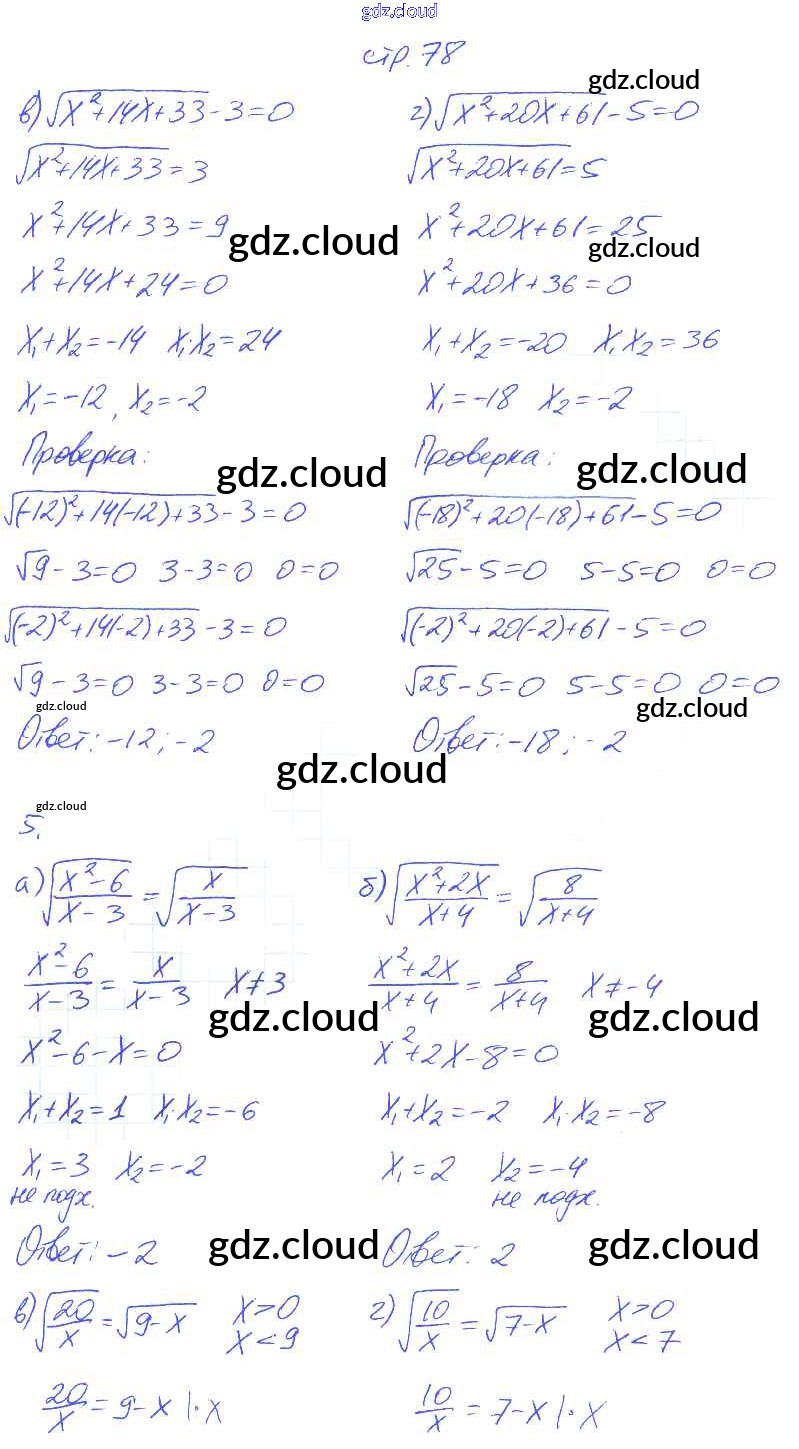 gdz.cloud
стр. 78
gdz.cloud
в) √(x²+14x+33) - 3 = 0
√(x²+14x+33) = 3
x²+14x+33 = 9
gdz.cloud
x²+14x+24 = 0
x₁+x₂ = -14 x₁·x₂ = 24
x₁ = -12, x₂ = -2
Проверка:
gdz.cloud
√((-12)²+14(-12)+33) - 3 = 0
√9 - 3 = 0 3-3=0 0=0
√((-2)²+14(-2)+33) - 3 = 0
√9 - 3 = 0 3-3=0 0=0
gdz.cloud
Ответ: -12; -2
г) √(x²+20x+61) - 5 = 0
√(x²+20x+61) = 5
x²+20x+61 = 25
gdz.cloud
x²+20x+36 = 0
x₁+x₂ = -20 x₁x₂ = 36
x₁ = -18 x₂ = -2
Проверка:
gdz.cloud
√((-18)²+20(-18)+61) - 5 = 0
√25 - 5 = 0 5-5=0 0=0
√((-2)²+20(-2)+61) - 5 = 0
√25 - 5 = 0 5-5=0 0=0
gdz.cloud
Ответ: -18; -2
gdz.cloud
gdz.cloud
5.
а) √((x²-6)/(x-3)) = √(x/(x-3))
(x²-6)/(x-3) = x/(x-3) x≠3
gdz.cloud
x²-6-x = 0
x₁+x₂ = 1 x₁·x₂ = -6
x₁ = 3 x₂ = -2
не подх.
Ответ: -2
gdz.cloud
б) √((x²+2x)/(x+4)) = √(8/(x+4))
(x²+2x)/(x+4) = 8/(x+4) x≠-4
gdz.cloud
x²+2x-8 = 0
x₁+x₂ = -2 x₁·x₂ = -8
x₁ = 2 x₂ = -4
не подх.
Ответ: 2
gdz.cloud
в) √(20/x) = √(9-x) x>0
x<9
20/x = 9-x |·x
г) √(10/x) = √(7-x) x>0
x<7
10/x = 7-x |·x